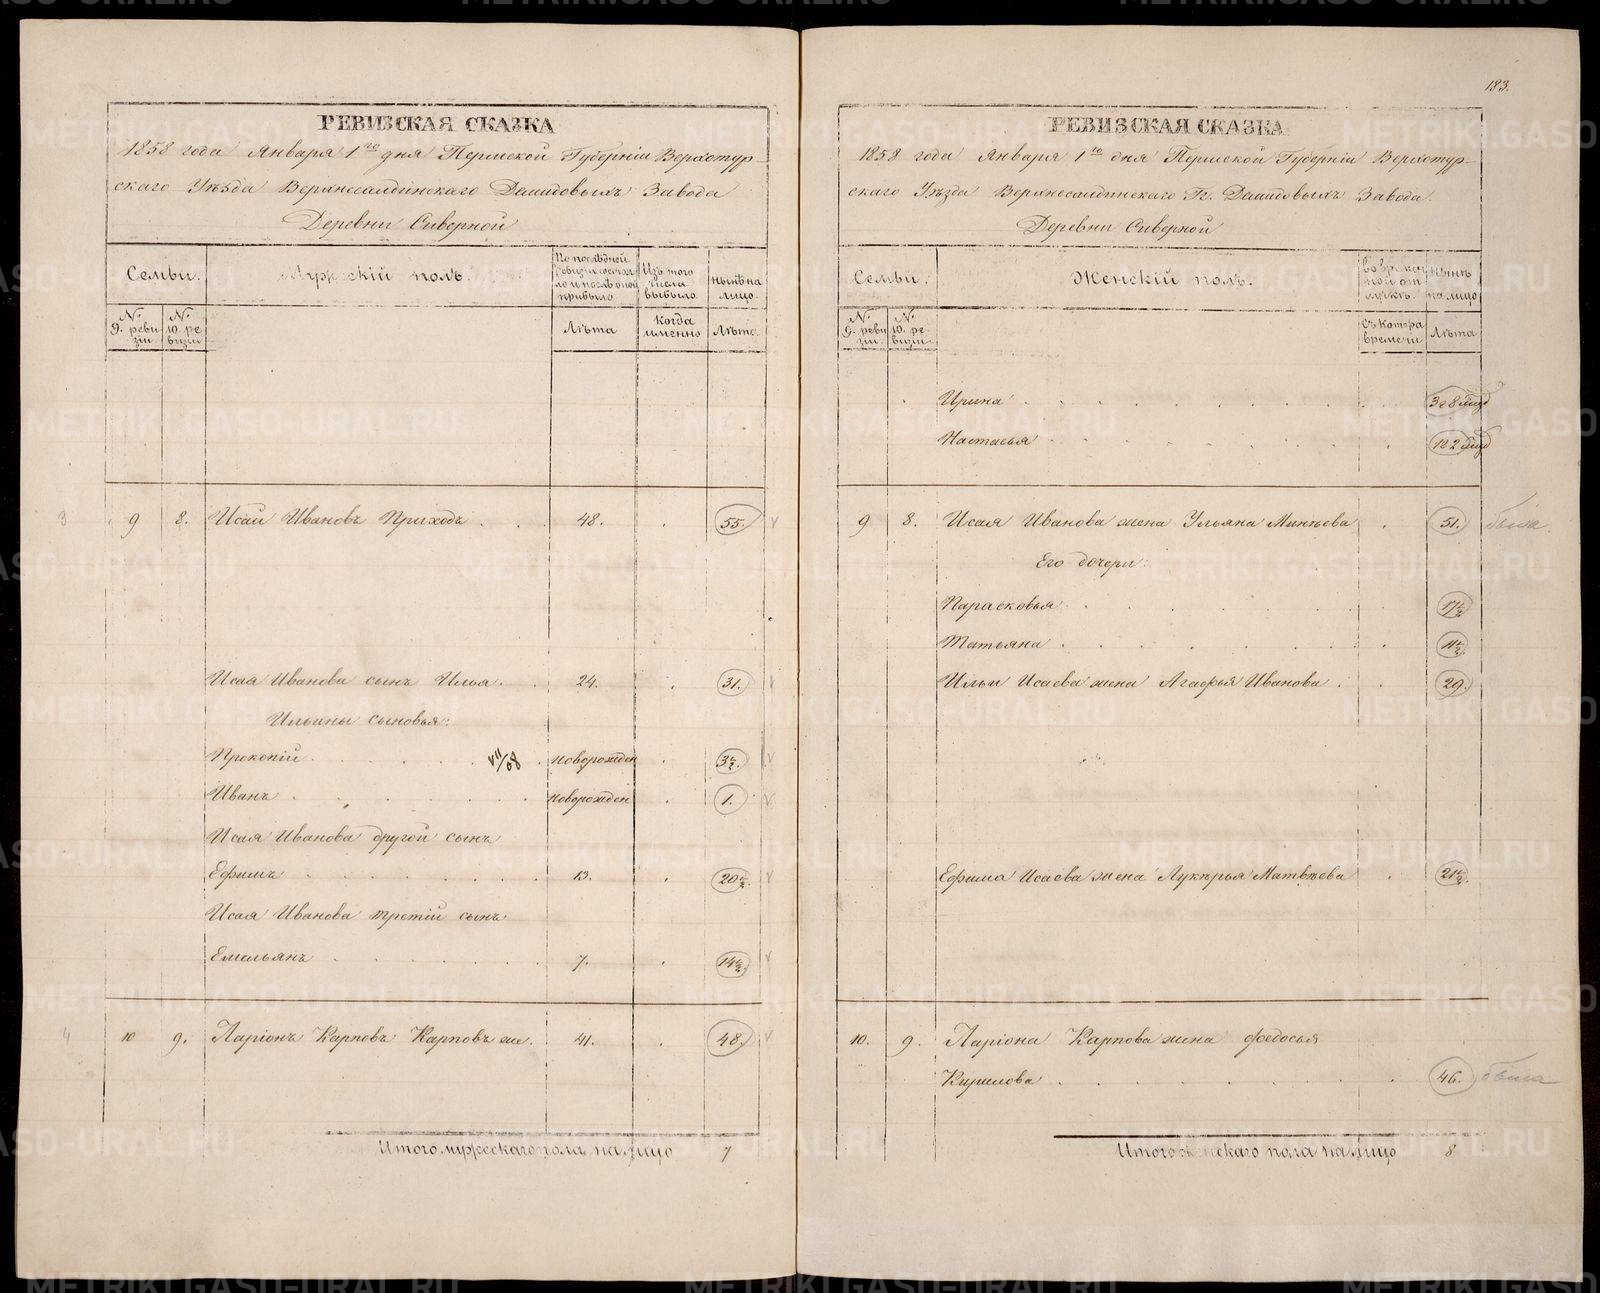 183.
РЕВИЗСКАЯ СКАЗКА
1858 года Января 1го дня Пермской Губерніи Верхотур-
скаго Уѣзда Верхнесалдинскаго Демидовыхъ Завода
Деревни Сиверной
Семьи. Мужескій полъ. По послѣдней ревизіи состояло и послѣ оной прибыло Изъ того числа выбыло Нынѣ на лицо.
№ 9. ревизіи № 10. ревизіи Лѣта Когда именно Лѣта
9 8. Исай Ивановъ Приходъ . . . 48. . 55.
Исая Иванова сынъ Илья . . 24. . 31.
Ильины сыновья:
Прокопій . . . VII/68 новорожден . 3½.
Иванъ . . . новорожден . 1.
Исая Иванова другой сынъ
Ефимъ . . . 13. . 20½.
Исая Иванова третій сынъ
Емельянъ . . . 7. . 14½.
10 9. Ларіонъ Карповъ Карповъ же. 41. . 48.
Итого мужескаго пола на лицо 7
РЕВИЗСКАЯ СКАЗКА
1858 года Января 1го дня Пермской Губерніи Верхотур-
скаго Уѣзда Верхнесалдинскаго Гг. Демидовыхъ Завода
Деревни Сиверной
Семьи. Женскій полъ. Во временной отлучкѣ. Нынѣ на лицо
№ 9. ревизіи № 10. ревизіи Съ котора времени Лѣта
Ирина . . .
Настасья . . .
9 8. Исая Иванова жена Ульяна Минѣева . 51. была.
Его дочери:
Парасковья . . . 17½
Татьяна . . . 11½
Ильи Исаева жена Агафья Иванова . . 29.
Ефима Исаева жена Лукерья Матвѣева . 21½.
10. 9. Ларіона Карпова жена Федосья
Кирилова . . . 46. была
Итого женскаго пола на лицо 8
METRIKI.GASO-URAL.RU